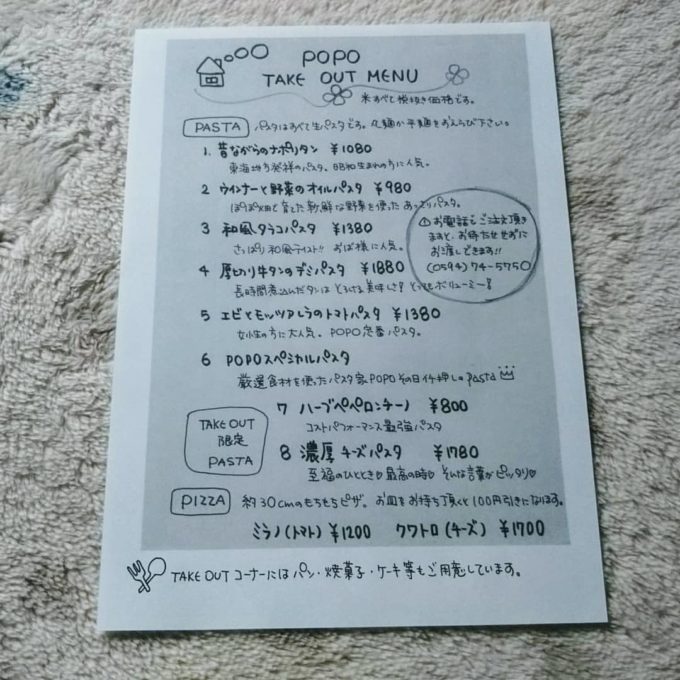 POPO
TAKE OUT MENU
※すべて税抜き価格です。
PASTA パスタはすべて生パスタです。丸麺か平麺をおえらび下さい。
1. 昔ながらのナポリタン ¥1080
東海地方発祥のパスタ。昭和生まれの方に人気。
2 ウインナーと野菜のオイルパスタ ¥980
ぽぽ畑で育てた新鮮な野菜を使ったあっさりパスタ。
3 和風タラコパスタ ¥1380
さっぱり和風テイスト!! おば様に人気。
4 厚切り牛タンのデミパスタ ¥1880
長時間煮込んだタンはとろける美味しさ とってもボリューミー
5 エビとモッツァレラのトマトパスタ ¥1380
女性の方に大人気。POPO定番パスタ。
6 POPOスペシャルパスタ
厳選食材を使ったパスタ家POPOその日イチ押しのpasta
⚠お電話でご注文頂き
ますと、お待たせせずに
お渡しできます!!
(0594)74-5750
TAKE OUT
限定
PASTA
7 ハーブペペロンチーノ ¥800
コストパフォーマンス最強パスタ
8 濃厚チーズパスタ ¥1780
至福のひととき♡最高の時♡そんな言葉がピッタリ♡
PIZZA 約30cmのもちもちピザ。お皿をお持ち頂くと100円引きになります。
ミラノ(トマト) ¥1200 クワトロ(チーズ) ¥1700
TAKE OUTコーナーにはパン・焼菓子・ケーキ等もご用意しています。